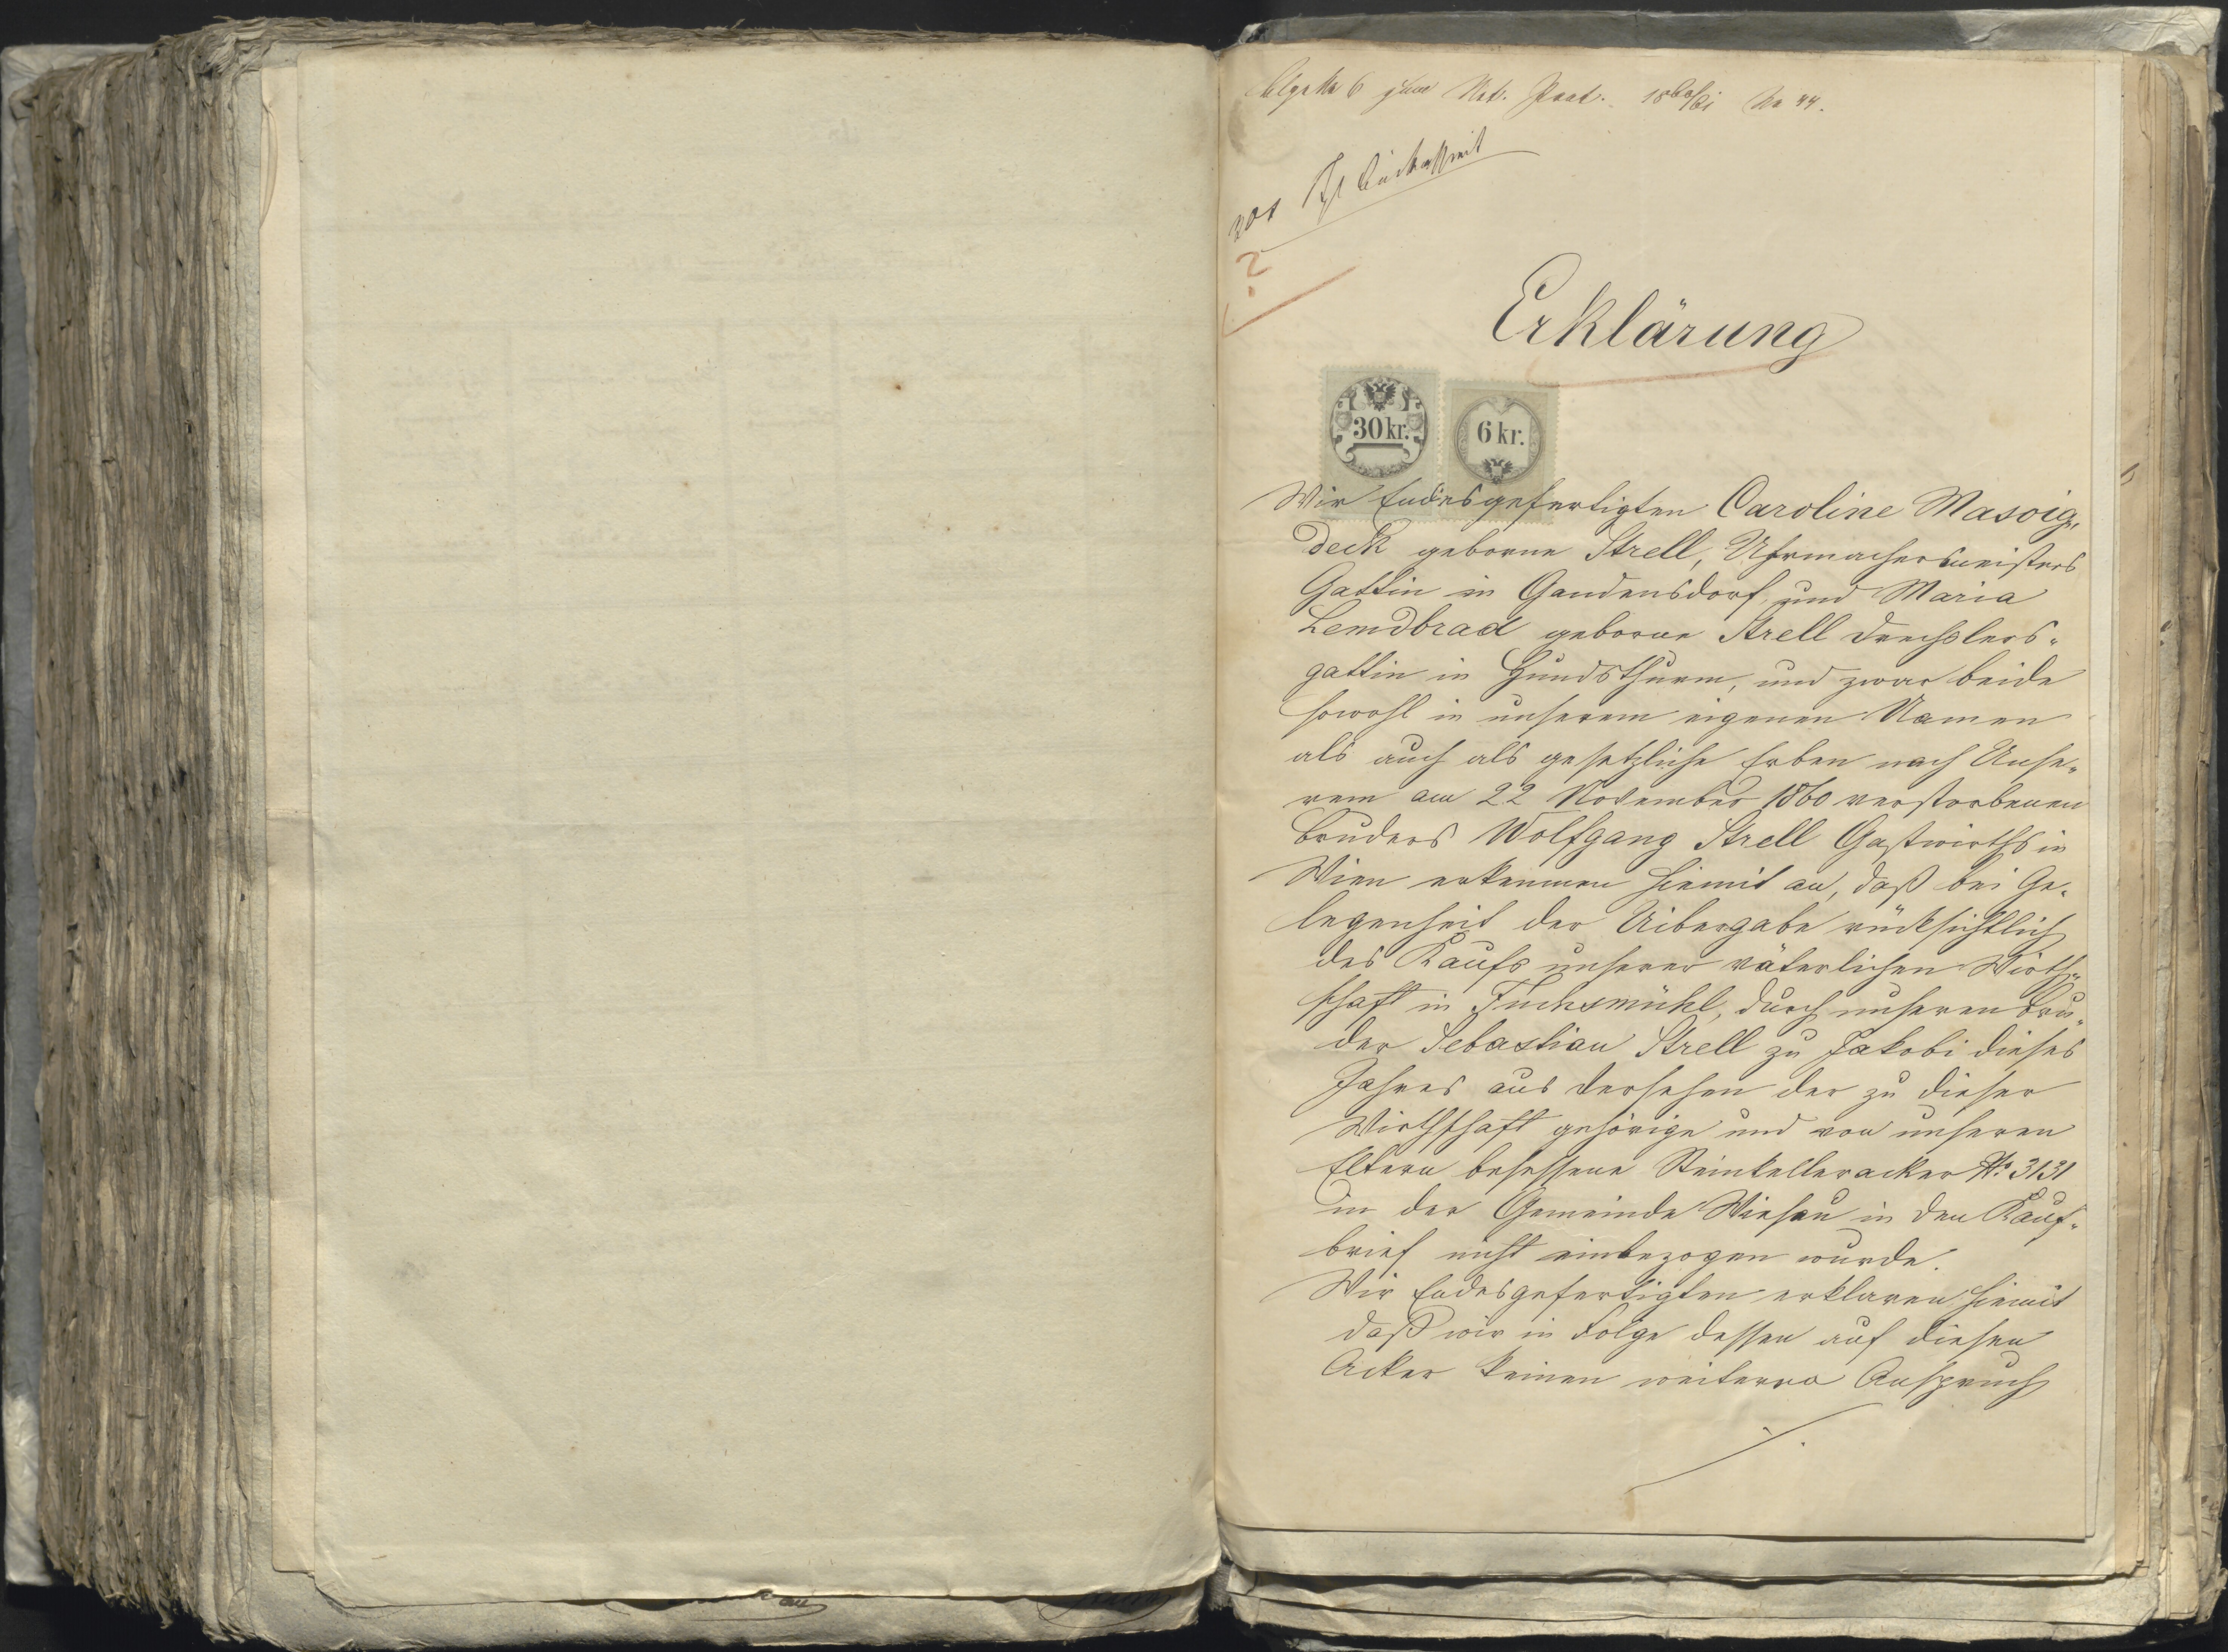 No 6 zum Not. Prot. 1860/61 No 44.
Erklärung
30 kr.
6 kr.
Wir Endesgefertigten Caroline Masoig„
deck geborne Strell, Uhrmachermeisters
Gattin in Gaudensdorf und Maria
Lemdbrad geborne Strell Drechslers„
gattin in Hundsthurm, und zwar beide
sowohl in unserem eigenen Namen
als auch als gesetzliche Erben nach Unse„
rem am 22 November 1860 verstorbenen
Bruders Wolfgang Strell Gastwirths in
Wien erkennen hiemit an, daß bei Ge„
legenheit der Uibergabe rücksichtlich
des Kaufs unserer väterlichen Wirth„
schaft in Fuchsmühl, durch unseren Bru„
der Sebastian Strell zu Jakobi dieses
Jahres aus Versehen der zu dieser
Wirthschaft gehörige und von unseren
Eltern besessene Steinkelleracker No 3131
in der Gemeinde Wiesau in den Kauf„
brief nicht einbezogen wurde.
Wir Endesgefertigten erklaren hiemit
daß wir in Folge dessen auf diesen
Acker keinen weiteren Anspruch
./.